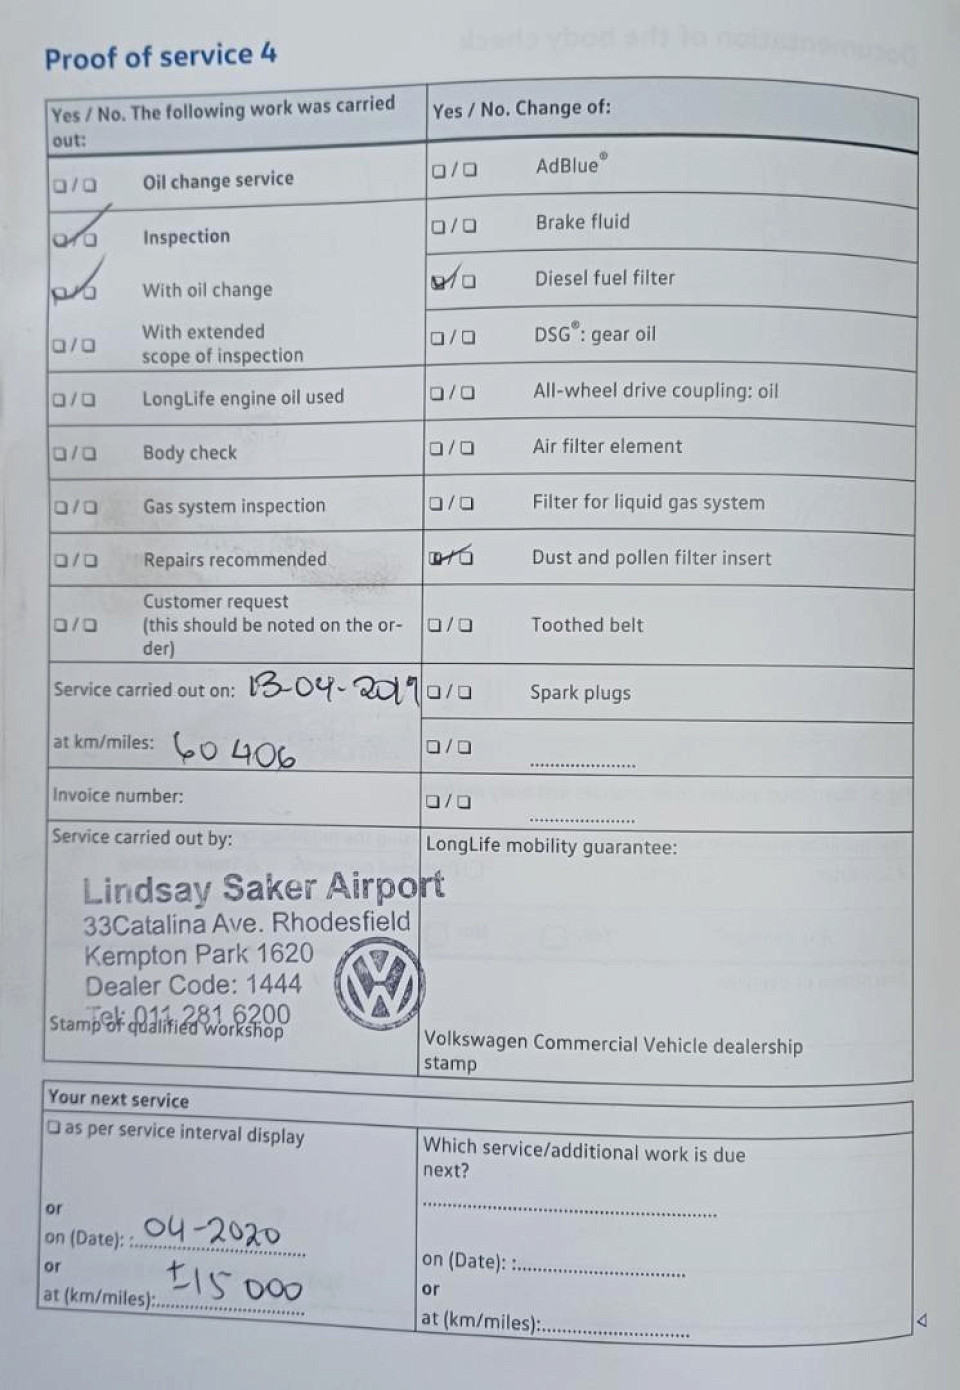 Proof of service 4
Yes / No. The following work was carried
out:
☐/☐ Oil change service
☑/☐ Inspection
☑/☐ With oil change
☐/☐ With extended
scope of inspection
☐/☐ LongLife engine oil used
☐/☐ Body check
☐/☐ Gas system inspection
☐/☐ Repairs recommended
Customer request
☐/☐ (this should be noted on the or-
der)
Service carried out on: 13-04-2019
at km/miles: 60 406
Invoice number:
Service carried out by:
Lindsay Saker Airport
33Catalina Ave. Rhodesfield
Kempton Park 1620
Dealer Code: 1444
Tel: 011 281 6200
Stamp of qualified workshop
Yes / No. Change of:
☐/☐ AdBlue®
☐/☐ Brake fluid
☑/☐ Diesel fuel filter
☐/☐ DSG®: gear oil
☐/☐ All-wheel drive coupling: oil
☐/☐ Air filter element
☐/☐ Filter for liquid gas system
☑/☐ Dust and pollen filter insert
☐/☐ Toothed belt
☐/☐ Spark plugs
☐/☐ ......................
☐/☐ ......................
LongLife mobility guarantee:
Volkswagen Commercial Vehicle dealership
stamp
Your next service
☐ as per service interval display
or
on (Date): : 04-2020
or
at (km/miles): ±15 000
Which service/additional work is due
next?
on (Date): :
or
at (km/miles):